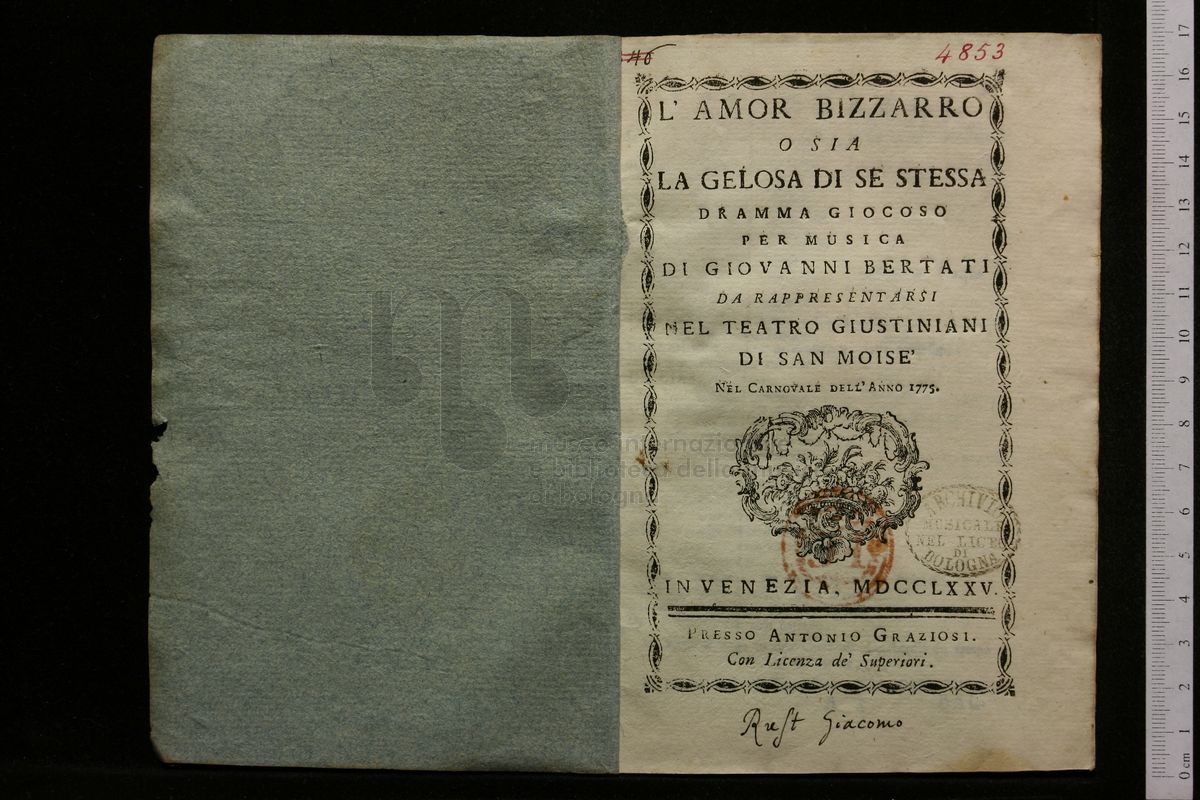 46
4853
L' AMOR BIZZARRO
O SIA
LA GELOSA DI SE STESSA
DRAMMA GIOCOSO
PER MUSICA
DI GIOVANNI BERTATI
DA RAPPRESENTARSI
NEL TEATRO GIUSTINIANI
DI SAN MOISE'
NEL CARNOVALE DELL' ANNO 1775.
museo internazionale
e biblioteca della
di bologna
ARCHIVIO
MUSICALE
NEL LICEO
DI
BOLOGNA
IN VENEZIA, MDCCLXXV.
PRESSO ANTONIO GRAZIOSI.
Con Licenza de' Superiori.
Rust Giacomo
0 cm 1 2 3 4 5 6 7 8 9 10 11 12 13 14 15 16 17